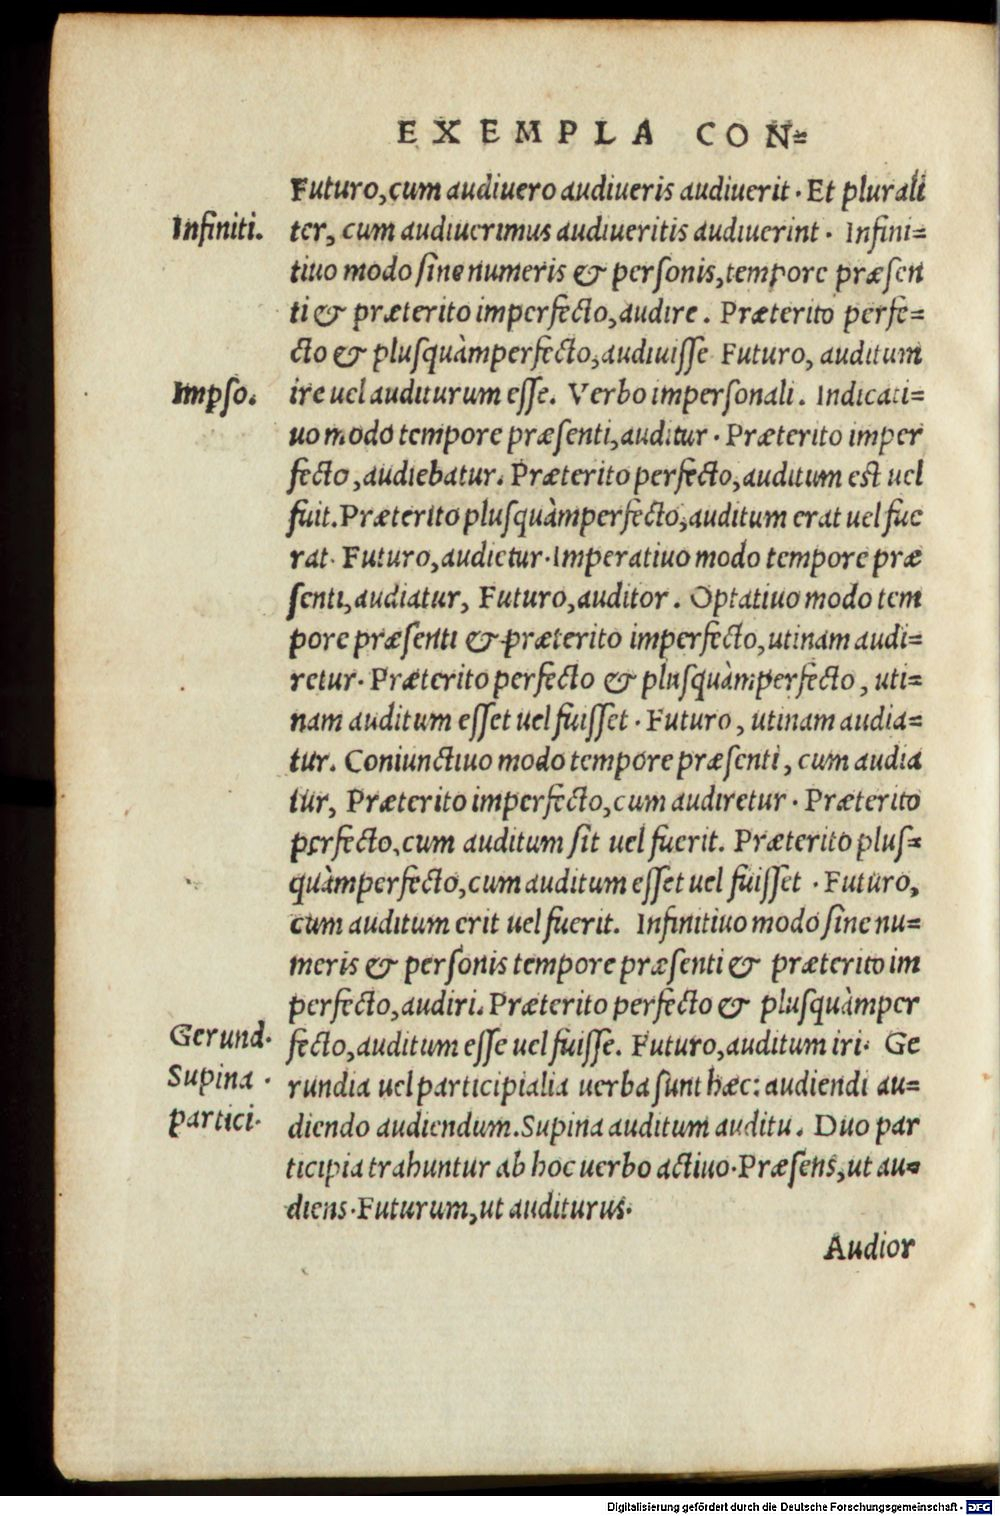 EXEMPLA CON=
Futuro,cum audiuero audiueris audiuerit. Et plurali
Infiniti.
ter, cum audiuerimus audiueritis audiuerint. Infini=
tiuo modo ſine numeris & perſonis,tempore præſen
ti & præterito imperfecto,audire. Præterito perfe=
cto & pluſquàmperfecto,audiuiſſe Futuro, auditum
Impſo.
ire uel auditurum eſſe. Verbo imperſonali. Indicati=
uo modo tempore præſenti,auditur. Præterito imper
fecto,audiebatur. Præterito perfecto,auditum est uel
fuit.Præterito pluſquàmperfecto,auditum erat uel fue
rat. Futuro,audietur.Imperatiuo modo tempore præ
ſenti,audiatur, Futuro,auditor. Optatiuo modo tem
pore præſenti & præterito imperfecto,utinam audi=
retur. Præterito perfecto & pluſquàmperfecto, uti=
nam auditum eſſet uel fuiſſet. Futuro, utinam audia=
tur. Coniunctiuo modo tempore præſenti, cum audia
tur, Præterito imperfecto,cum audiretur. Præterito
perfecto,cum auditum ſit uel fuerit. Præterito pluſ=
quàmperfecto,cum auditum eſſet uel fuiſſet. Futuro,
cum auditum erit uel fuerit. Infinitiuo modo ſine nu=
meris & perſonis tempore præſenti & præterito im
perfecto,audiri. Præterito perfecto & pluſquàmper
Gerund.
fecto,auditum eſſe uel fuiſſe. Futuro,auditum iri. Ge
Supina.
rundia uel participialia uerba ſunt hæc: audiendi au=
partici.
diendo audiendum.Supina auditum auditu. Duo par
ticipia trahuntur ab hoc uerbo actiuo.Præſens,ut au=
diens.Futurum,ut auditurus.
Audior
Digitalisierung gefördert durch die Deutsche Forschungsgemeinschaft - DFG